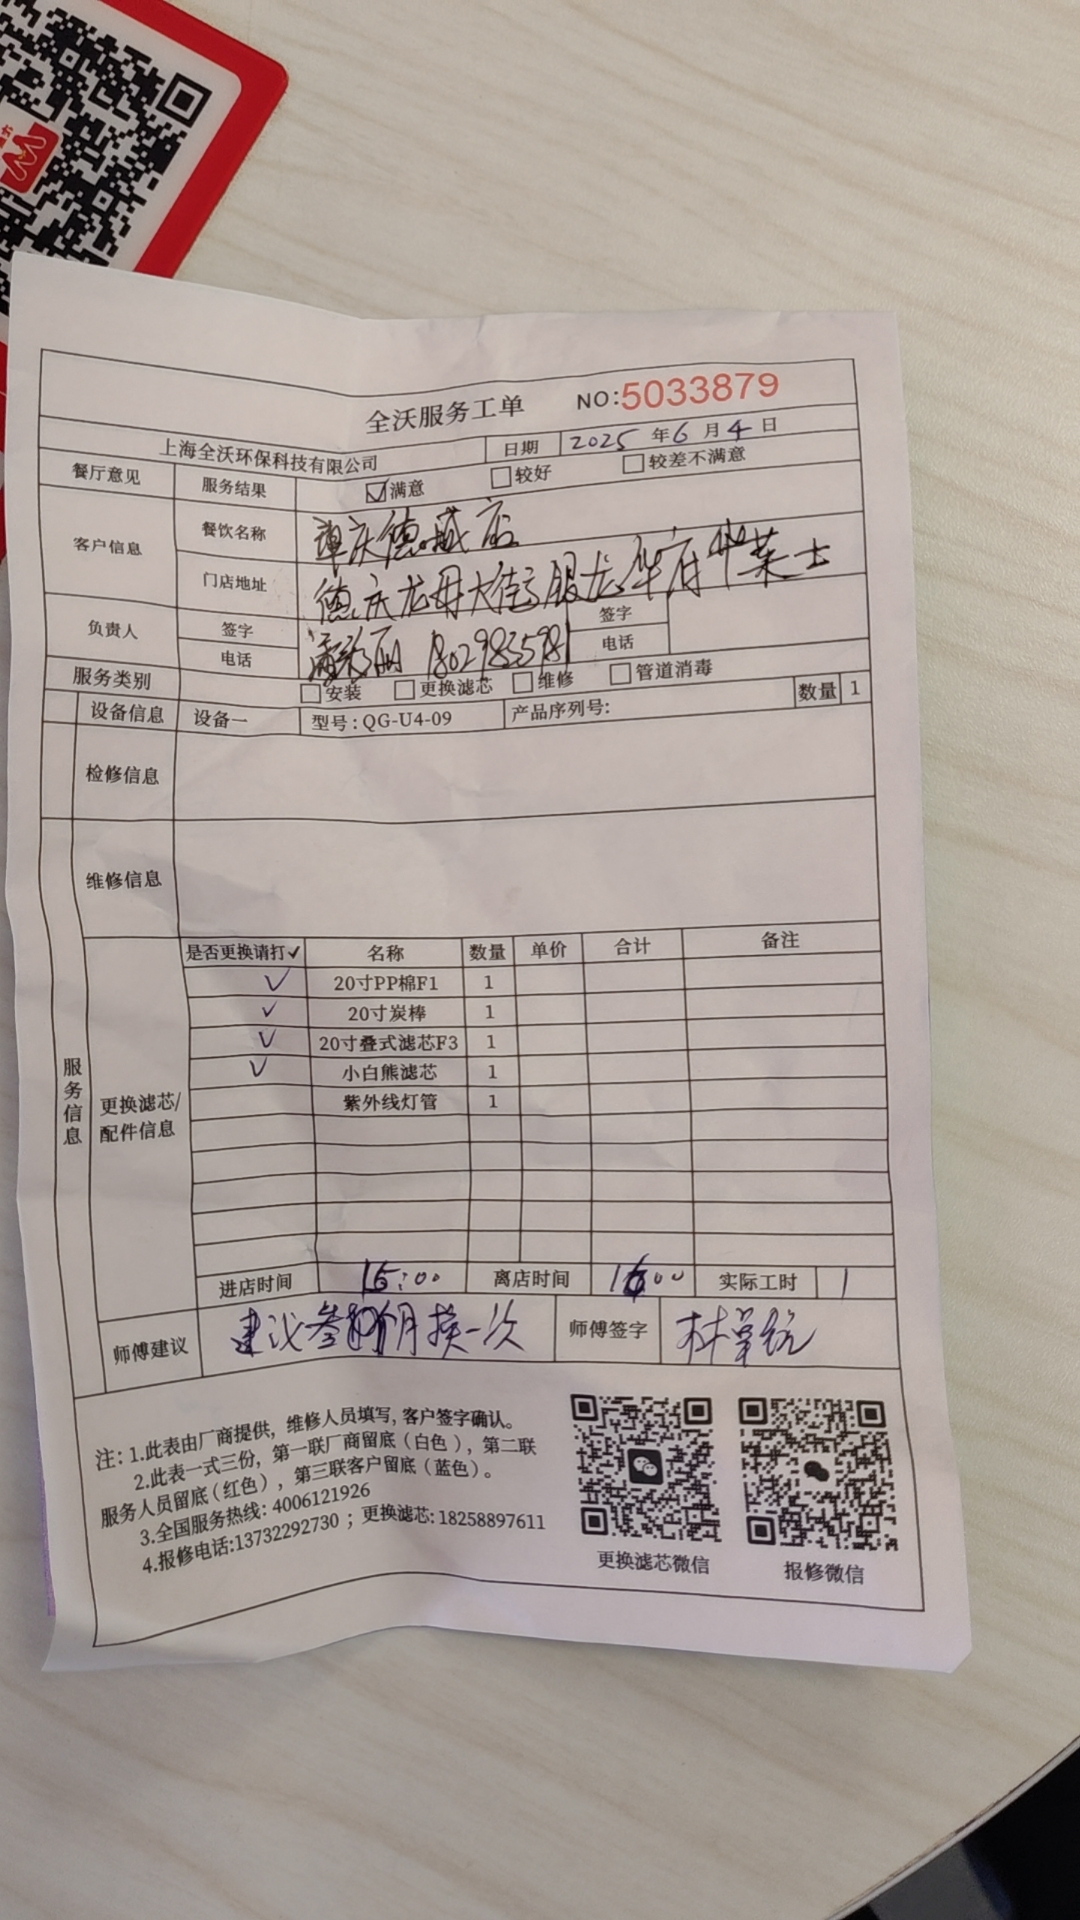 全沃服务工单 NO:5033879
上海全沃环保科技有限公司 日期 2025 年 6 月 4 日
餐厅意见 服务结果 ☑满意 □较好 □较差不满意
客户信息 餐饮名称 庆德 店
门店地址 德庆龙母大街 银龙华府华莱士
负责人 签字 签字
电话 18029835981 电话
服务类别 □安装 □更换滤芯 □维修 □管道消毒
设备信息 设备一 型号:QG-U4-09 产品序列号: 数量 1
检修信息
维修信息
服务信息
更换滤芯/
配件信息
是否更换请打✓ 名称 数量 单价 合计 备注
✓ 20寸PP棉F1 1
✓ 20寸炭棒 1
✓ 20寸叠式滤芯F3 1
✓ 小白熊滤芯 1
紫外线灯管 1
进店时间 15:00 离店时间 1600 实际工时 1
师傅建议 建议叁个月换一次 师傅签字 林
注: 1.此表由厂商提供，维修人员填写, 客户签字确认。
2.此表一式三份，第一联厂商留底（白色），第二联
服务人员留底（红色），第三联客户留底（蓝色）。
3.全国服务热线: 4006121926
4.报修电话:13732292730 ；更换滤芯: 18258897611
更换滤芯微信 报修微信